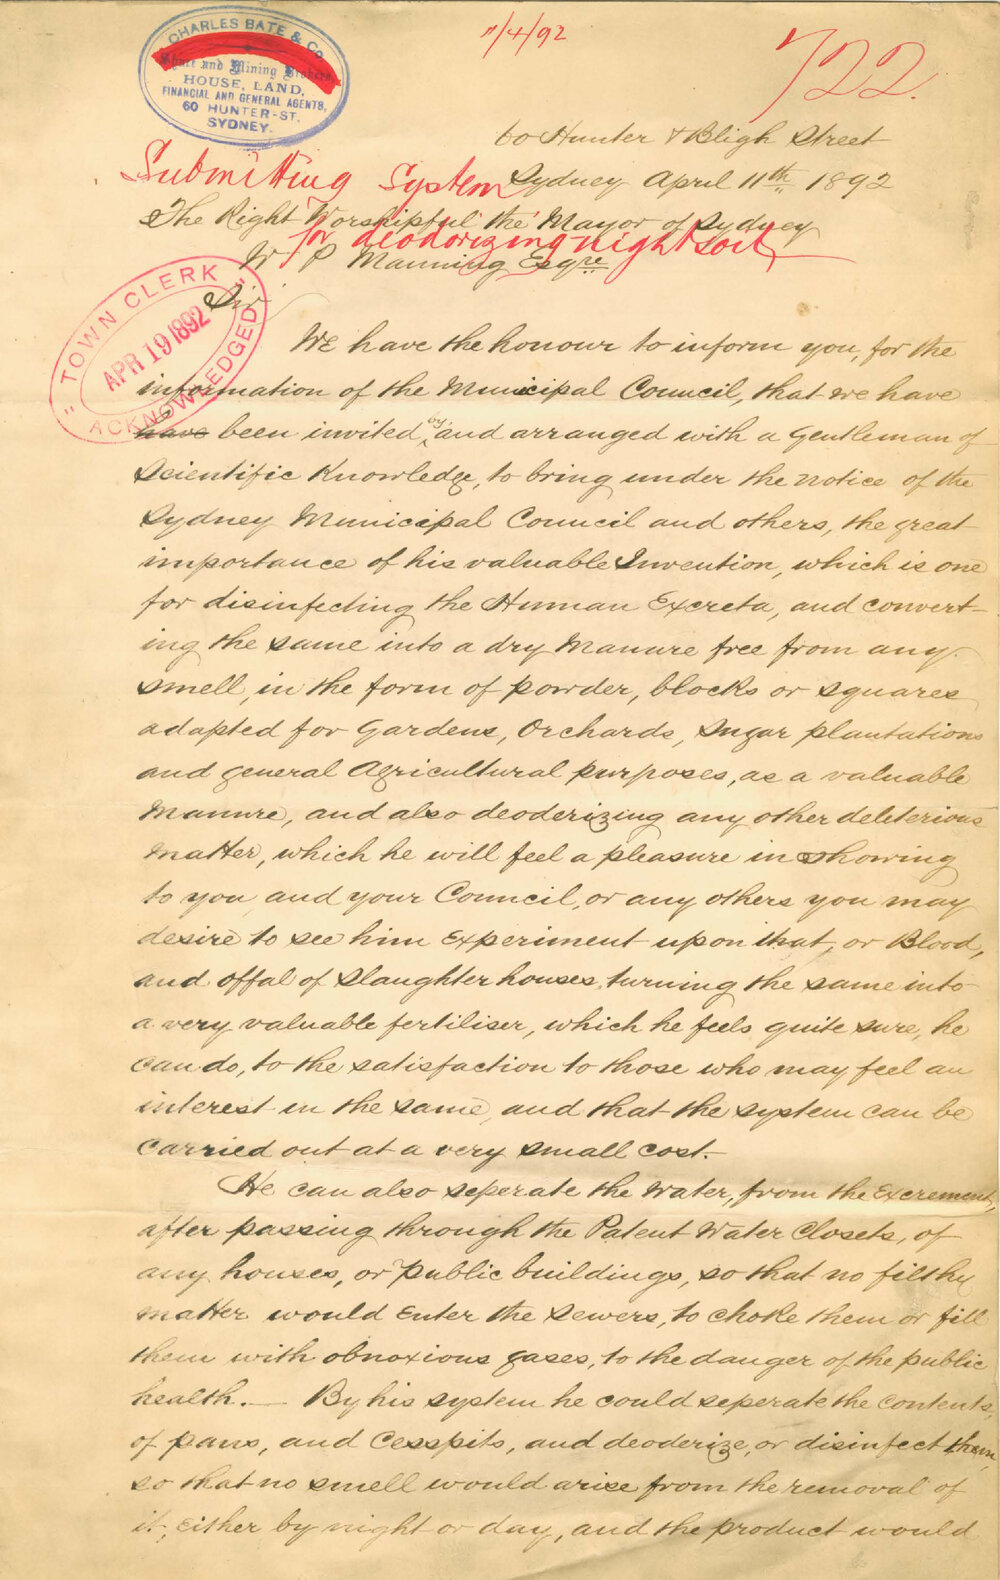 CHARLES BATE & Co
Share and Mining Brokers
HOUSE, LAND,
FINANCIAL AND GENERAL AGENTS,
60 HUNTER-ST.
SYDNEY.
11/4/92
722.
60 Hunter & Bligh Street
Submitting System
Sydney April 11th 1892
The Right Worshipful the Mayor of Sydney
for deodorizing nightsoil
W P Manning Esqre
Sir
"TOWN CLERK"
APR 19 1892
ACKNOWLEDGED
We have the honour to inform you, for the
information of the Municipal Council, that we have
have been invited by and arranged with a Gentleman of
Scientific Knowledge, to bring under the notice of the
Sydney Municipal Council and others, the great
importance of his valuable Invention, which is one
for disinfecting the Human Excreta, and convert-
ing the same into a dry Manure free from any
smell, in the form of powder, blocks or squares
adapted for Gardens, Orchards, Sugar plantations
and general Agricultural purposes, as a valuable
Manure, and also deoderizing any other deleterious
Matter, which he will feel a pleasure in showing
to you and your Council, or any others you may
desire to see him Experiment upon that, or Blood,
and offal of Slaughter houses, turning the same into
a very valuable fertiliser, which he feels quite sure, he
can do, to the satisfaction to those who may feel an
interest in the same, and that the system can be
carried out at a very small cost.-
He can also seperate the Water, from the Excrement,
after passing through the Patent Water Closets, of
any houses, or Public buildings, so that no filthy
matter would Enter the Sewers, to choke them or fill
them with obnoxious gases, to the danger of the public
health. — By his system he could seperate the Contents,
of pans, and Cesspits, and deoderize, or disinfect them,
so that no smell would arise from the removal of
it, Either by night or day, and the product would